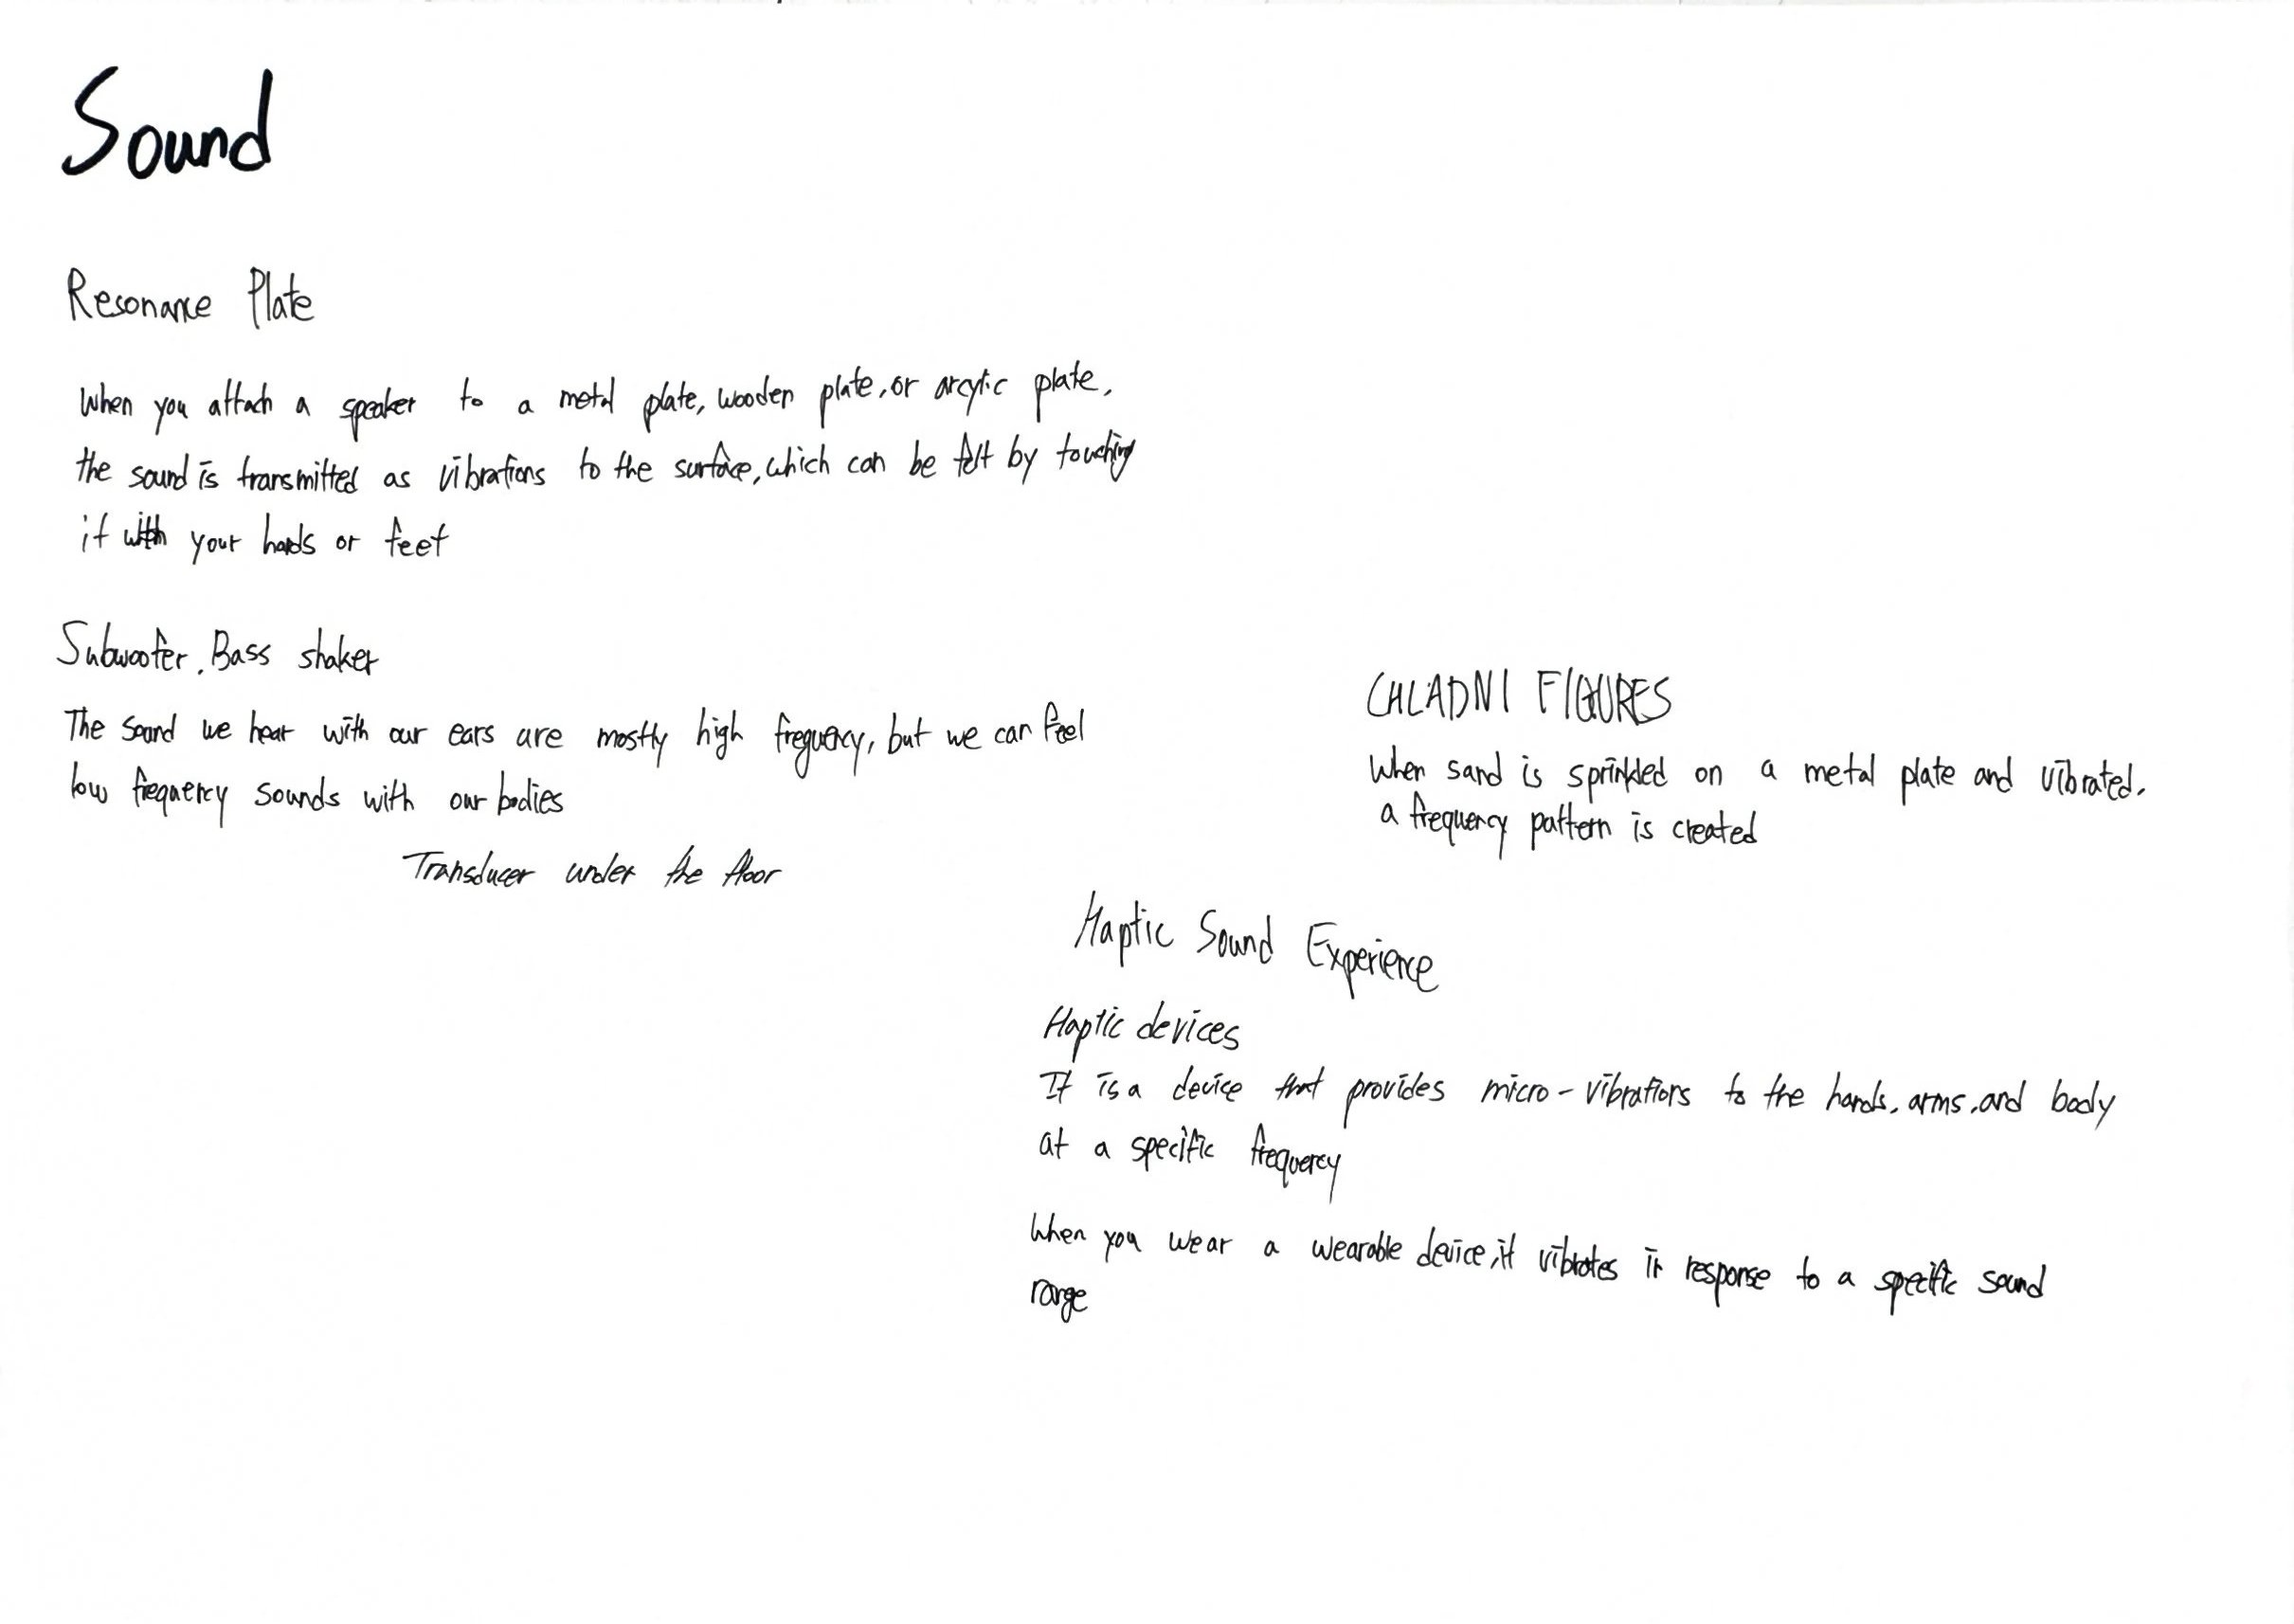 Sound
Resonance Plate
When you attach a speaker to a metal plate, wooden plate, or arcytic plate,
the sound is transmitted as vibrations to the surface, which can be felt by touching
it with your hands or feet
Subwoofer, Bass shaker
The sound we hear with our ears are mostly high frequency, but we can feel
low frequency sounds with our bodies
Transducer under the floor
CHLADNI FIGURES
When sand is sprinkled on a metal plate and vibrated,
a frequency pattern is created
Haptic Sound Experience
Haptic devices
It is a device that provides micro-vibrations to the hands, arms, and body
at a specific frequency
When you wear a wearable device, it vibrates in response to a specific sound
range